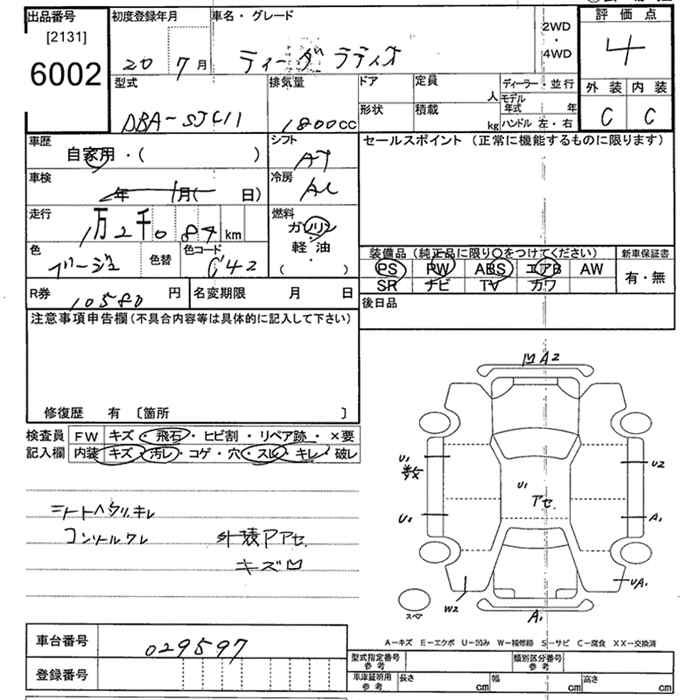 出品番号
[2131]
6002
初度登録年月
20 7月
車名・グレード
ティーダラティオ
2WD
・
4WD
評価点
4
外装 内装
C C
型式
DBA-SJC11
排気量
1800CC
ドア
形状
定員 人
積載 kg
ディーラー・並行
モデル年式 年
ハンドル 左・右
車歴
自家用・( )
シフト
AT
セールスポイント (正常に機能するものに限ります)
車検
年 月( 日)
冷房
AC
走行
1万2千087km
燃料
ガソリン
軽油
( ・ )
色
ベージュ
色替
色コード
C42
装備品 (純正品に限り〇をつけてください)
PS PW ABS エアB AW
SR ナビ TV カワ
新車保証書
有・無
R券 10580円
名変期限 月 日
後日品
注意事項申告欄(不具合内容等は具体的に記入して下さい)
修復歴 有 〔箇所 〕
検査員記入欄
FW キズ・飛石・ヒビ割・リペア跡・×要
内装 キズ・汚レ・コゲ・穴・スレ・キレ・破レ
シートヘタリ.キレ
コンソールワレ
外装アアセ
キズ凹
凹 A2
U1
数
U2
U1
アセ
U2
A1
UA1
W2
A1
スペア
A－キズ E－エクボ U－凹み W－補修跡 S－サビ C－腐食 XX－交換済
車台番号
029597
登録番号
型式指定番号
参考
類別区分番号
参考
車庫証明用
参考
長さ cm
幅 cm
高さ cm